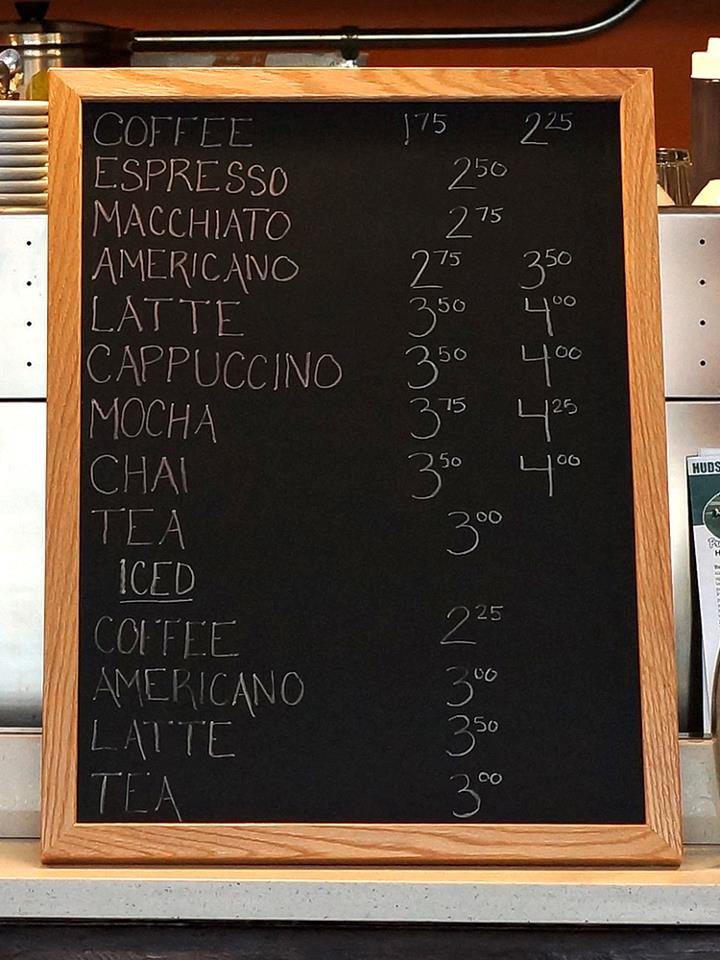 COFFEE 1 75 2 25
ESPRESSO 2 50
MACCHIATO 2 75
AMERICANO 2 75 3 50
LATTE 3 50 4 00
CAPPUCCINO 3 50 4 00
MOCHA 3 75 4 25
CHAI 3 50 4 00
TEA 3 00
ICED
COFFEE 2 25
AMERICANO 3 00
LATTE 3 50
TEA 3 00
HUDS